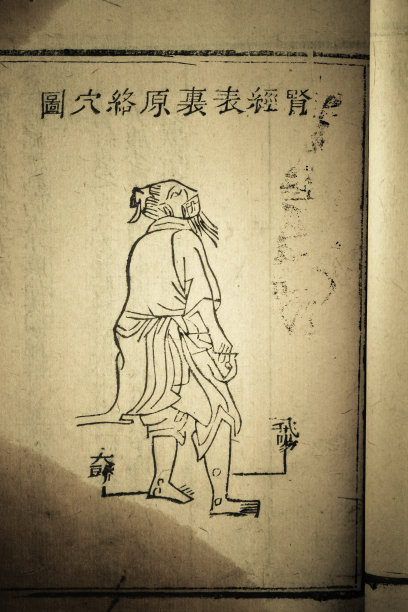 腎經表裏原絡穴圖
飛揚
太谿